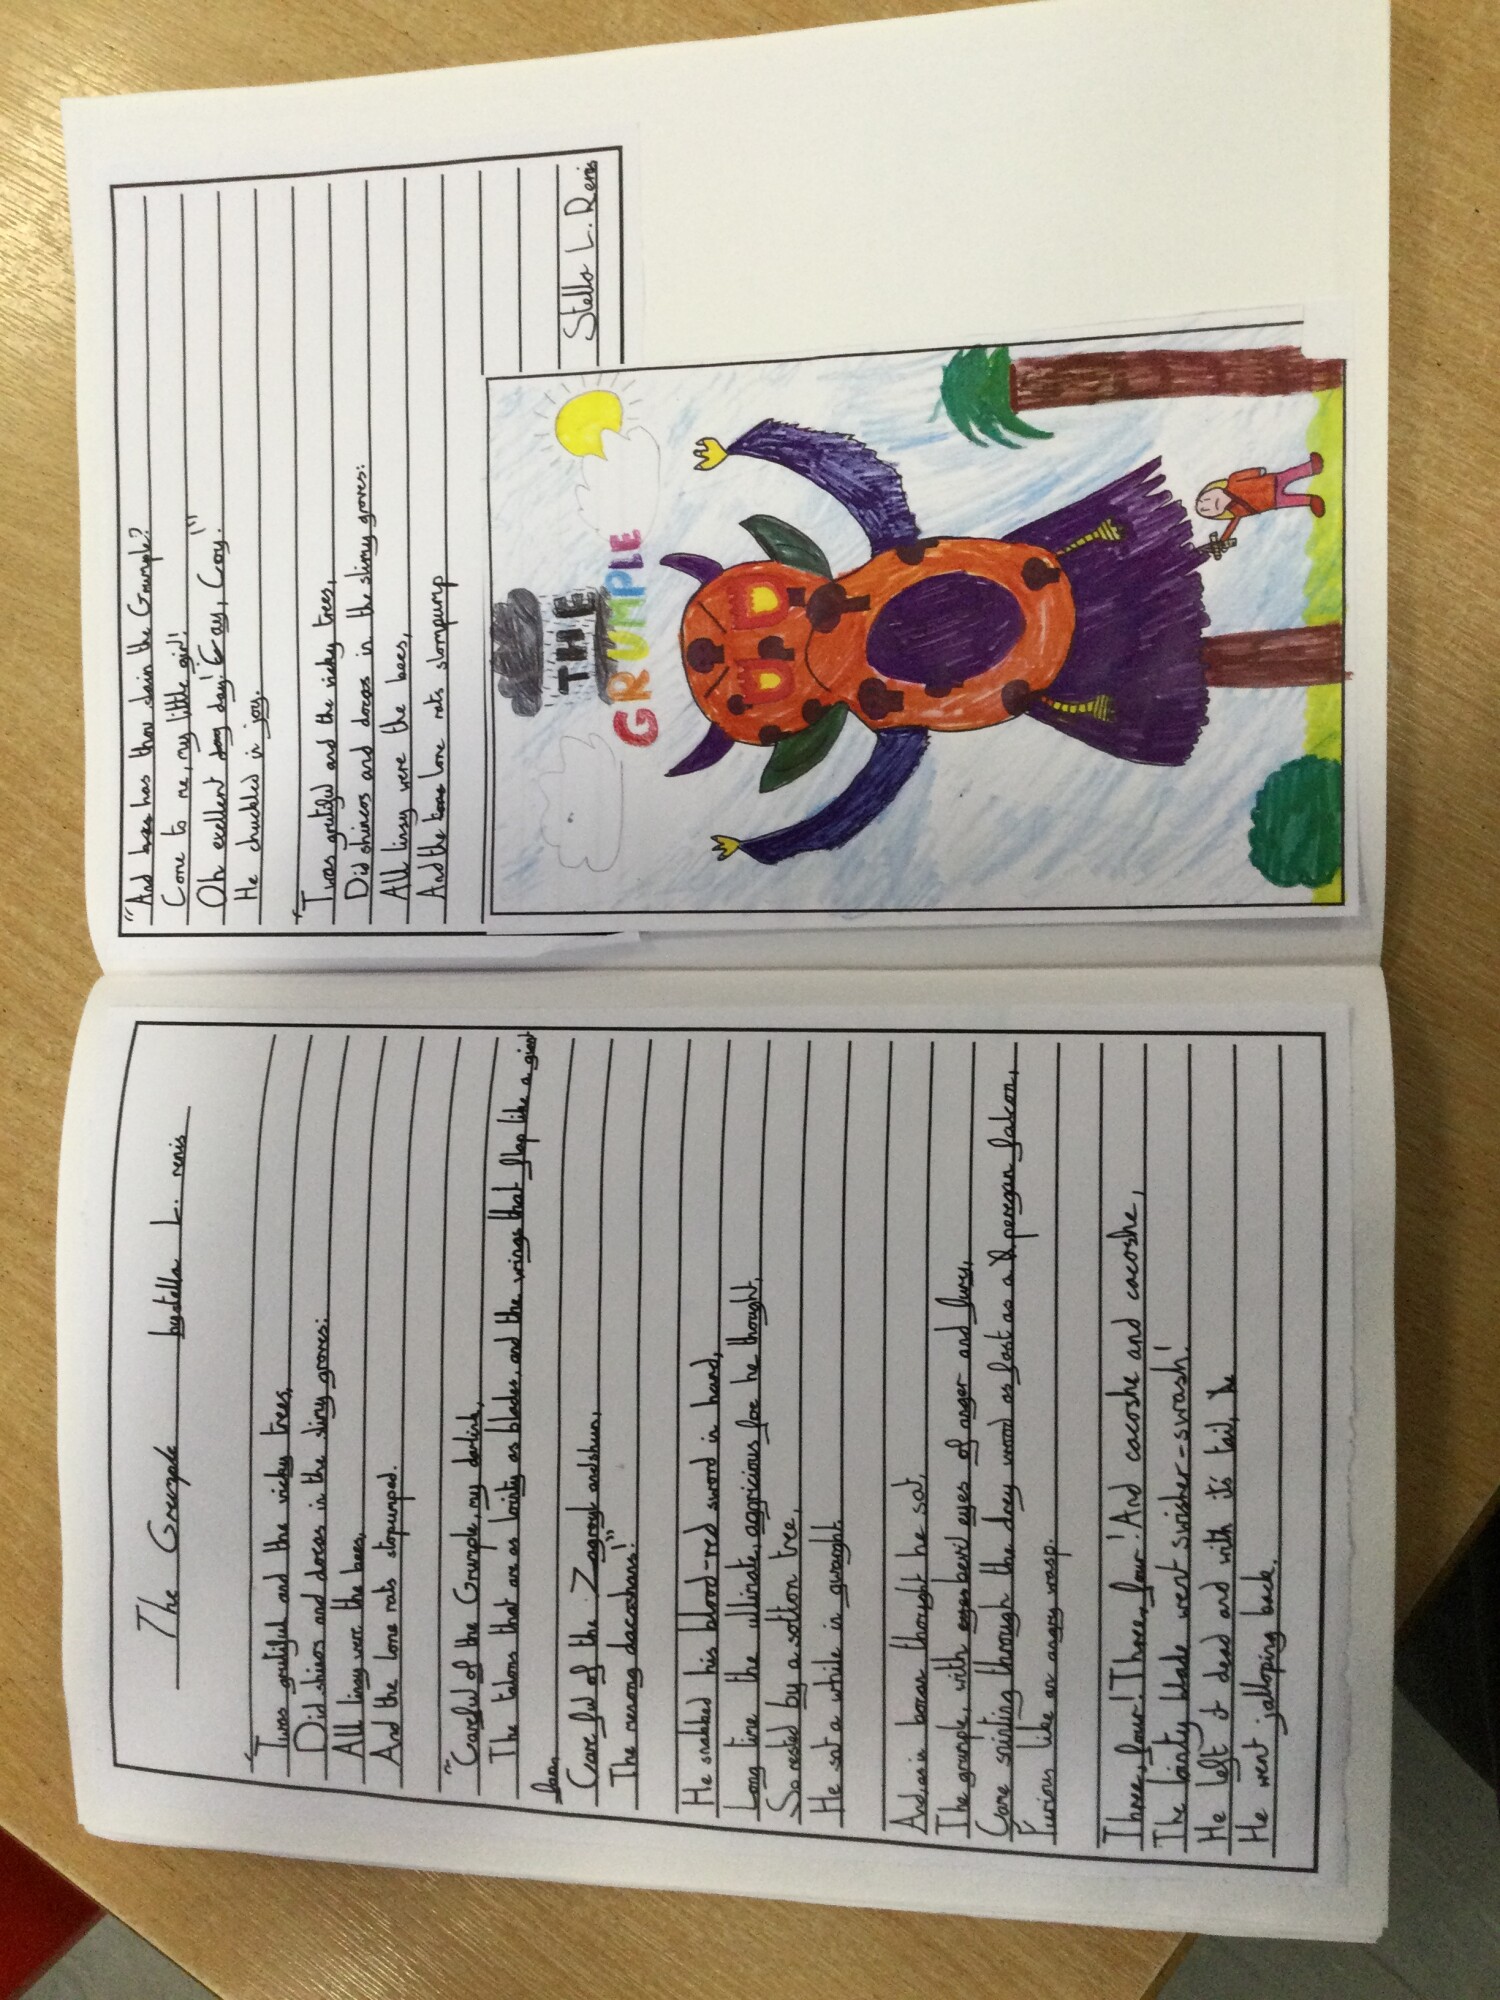 The Grumple by stella L. renis
'Twas grutiful and the vicky trees,
Did shincos and doces in the slimy groves:
All linsy were the bees,
And the lone rats stopumped.
"Careful of the Grumple, my darlink,
The talons that are as lointy as blades, and the wings that flap like a giant
fan
Careful of the Zagroyt and shun,
The merong dacoshans!"
He snabbed his blood-red sword in hand,
Long time the ulinate, aggricious foe he thought,
So rested by a sotton tree,
He sat a while in gwaught.
And as in bocas thought he sat,
The grumple, with bevil eyes of anger and fury,
Came sninting through the drey wood as fast as a peregan falcon,
Furious like an angry wasp.
Three, four! Three, four! And cacoshe and cacoshe,
The lointy blade went swisher-swash!
He left it dead and with it's tail,
He went jalloping back.
"And has thou slain the Grumple?
Come to me, my little girl!
Oh exellent day! Eay, Croy!"
He chuckled in joy.
'Twas grutiful and the vicky trees,
Did shincos and doces in the slimy groves:
All linsy were the bees,
And the lone rats stompump
Stella L. Renis
THE
GRUMPLE